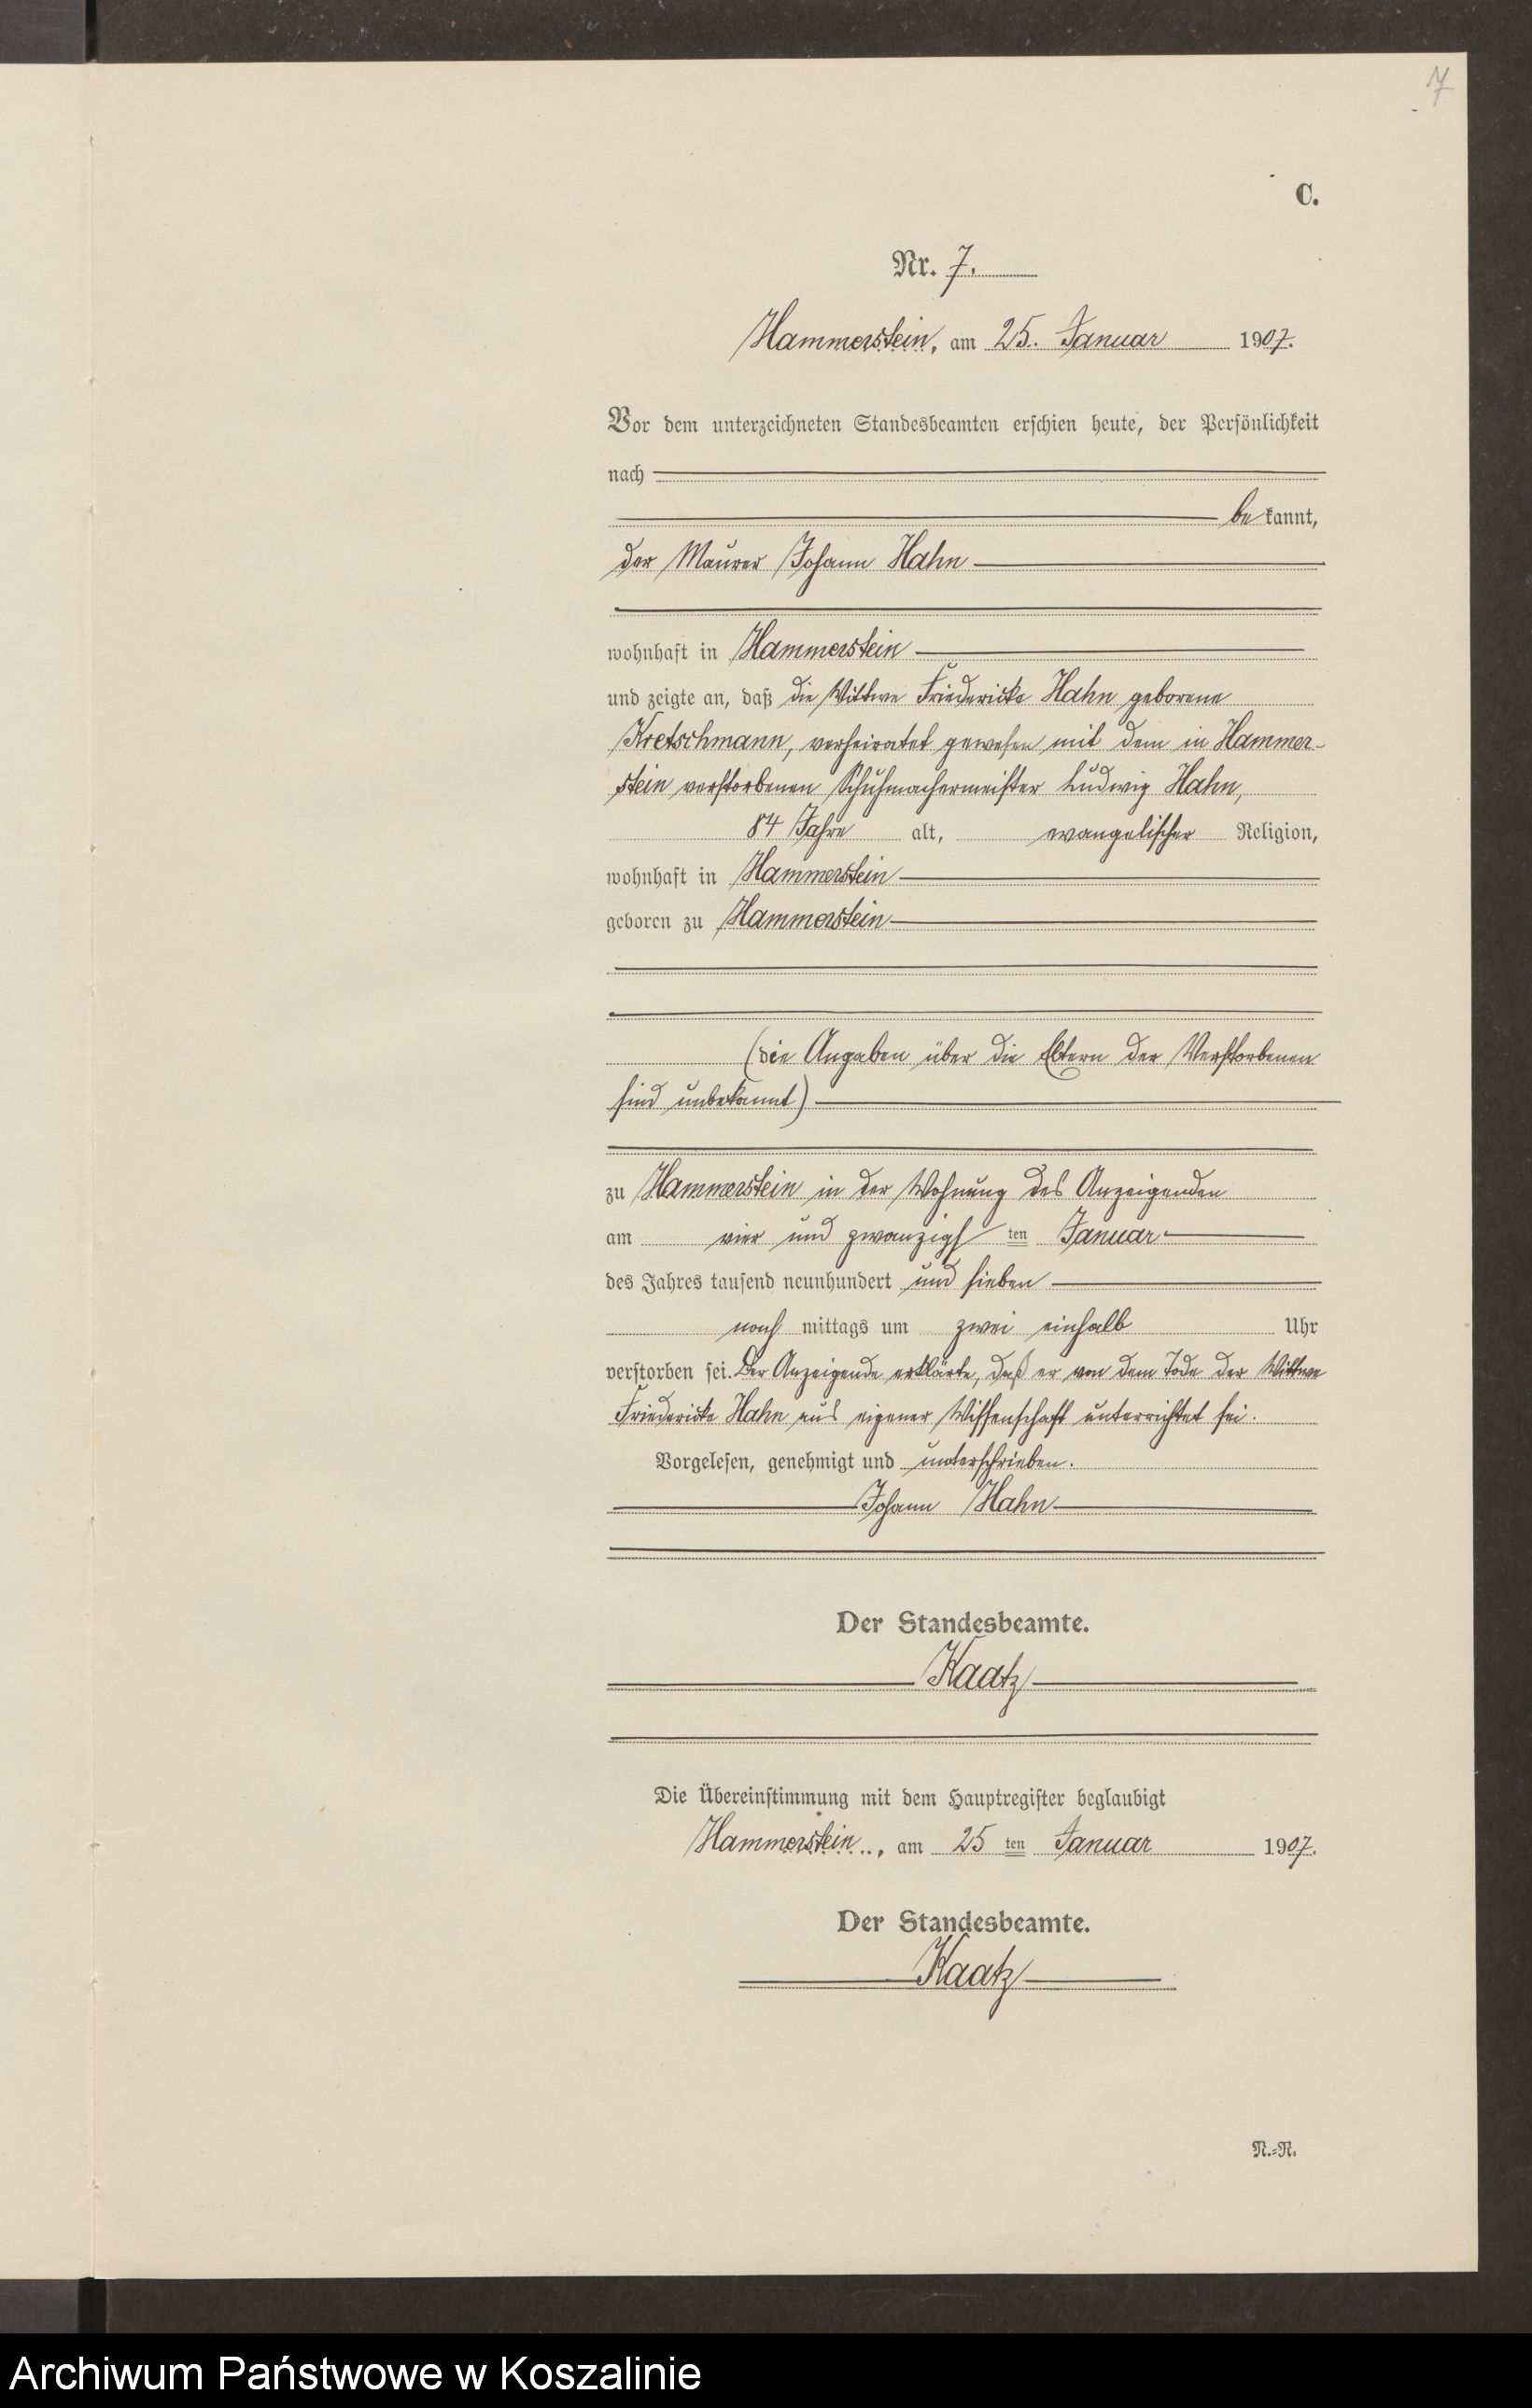 7
C.
Nr. 7.
Hammerstein, am 25. Januar 1907.
Vor dem unterzeichneten Standesbeamten erschien heute, der Persönlichkeit
nach
be kannt,
der Maurer Johann Hahn
wohnhaft in Hammerstein
und zeigte an, daß die Wittwe Friedericke Hahn geborene
Kretschmann, verheiratet gewesen mit dem in Hammer-
stein verstorbenen Schuhmachermeister Ludwig Hahn,
84 Jahre alt, evangelischer Religion,
wohnhaft in Hammerstein
geboren zu Hammerstein
(die Angaben über die Eltern der Verstorbenen
sind unbekannt)
zu Hammerstein in der Wohnung des Anzeigenden
am vier und zwanzigs ten Januar
des Jahres tausend neunhundert und sieben
nach mittags um zwei einhalb Uhr
verstorben sei. Der Anzeigende erklärte, daß er von dem Tode der Wittwe
Friedericke Hahn aus eigener Wissenschaft unterrichtet sei.
Vorgelesen, genehmigt und unterschrieben.
Johann Hahn
Der Standesbeamte.
Kaatz
Die Übereinstimmung mit dem Hauptregister beglaubigt
Hammerstein, am 25 ten Januar 1907.
Der Standesbeamte.
Kaatz
N.=R.
Archiwum Państwowe w Koszalinie